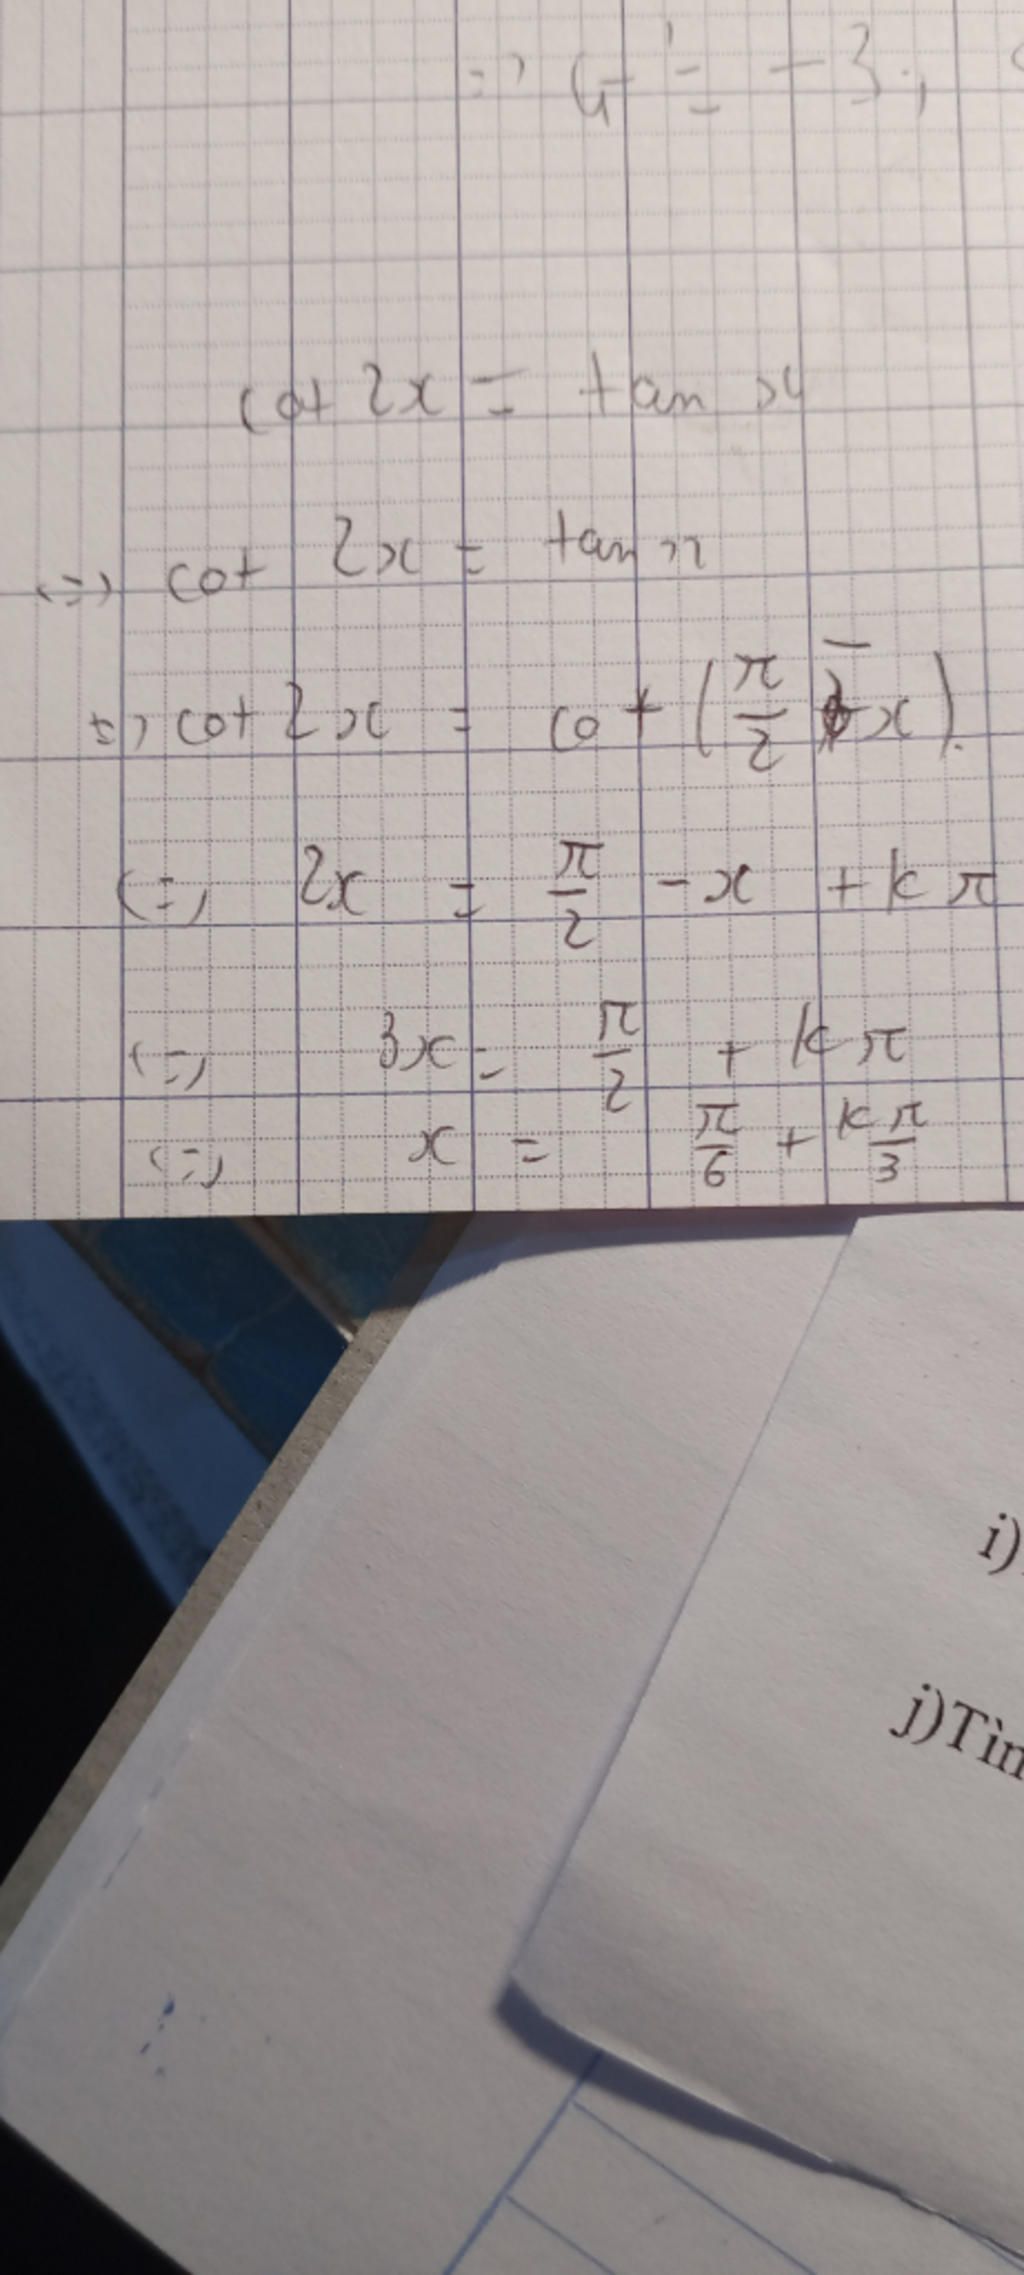 => y' = -3;
cot 2x = tan x
<=> cot 2x = tan x
<=> cot 2x = cot (π/2 - x).
<=> 2x = π/2 - x + kπ
<=> 3x = π/2 + kπ
<=> x = π/6 + kπ/3
i)
j)Tìm